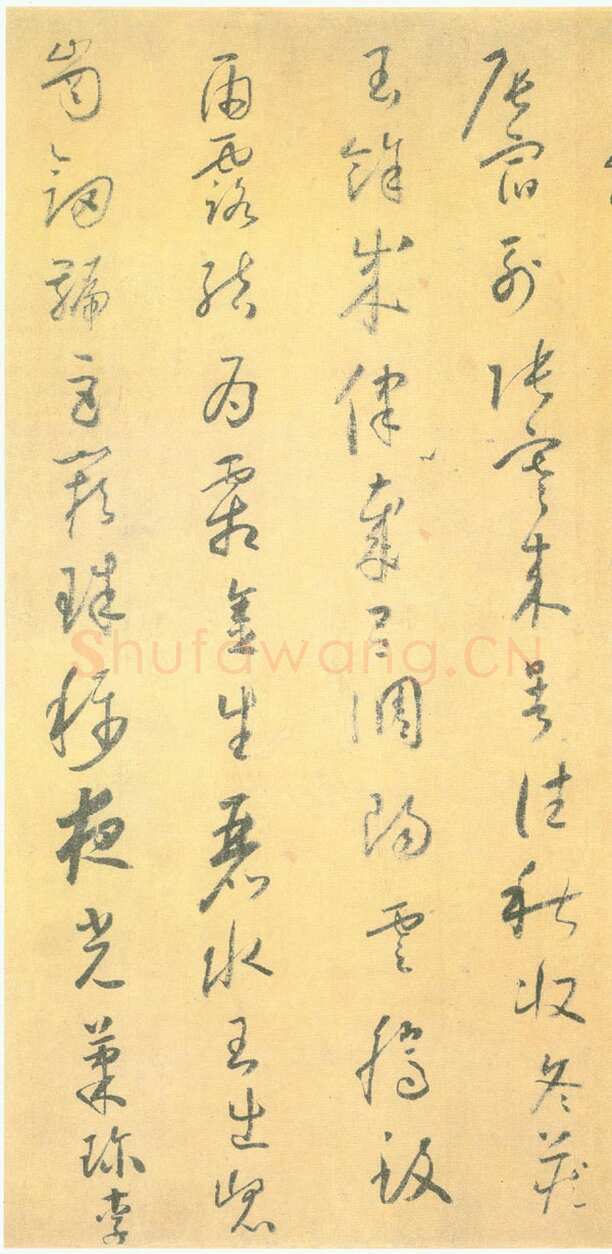 辰宿列張寒來暑往秋收冬藏
閏餘成律歲呂調陽雲騰致
雨露結為霜金生麗水玉出崐
崗劍號巨闕珠稱夜光菓珍李
Shufawang.CN